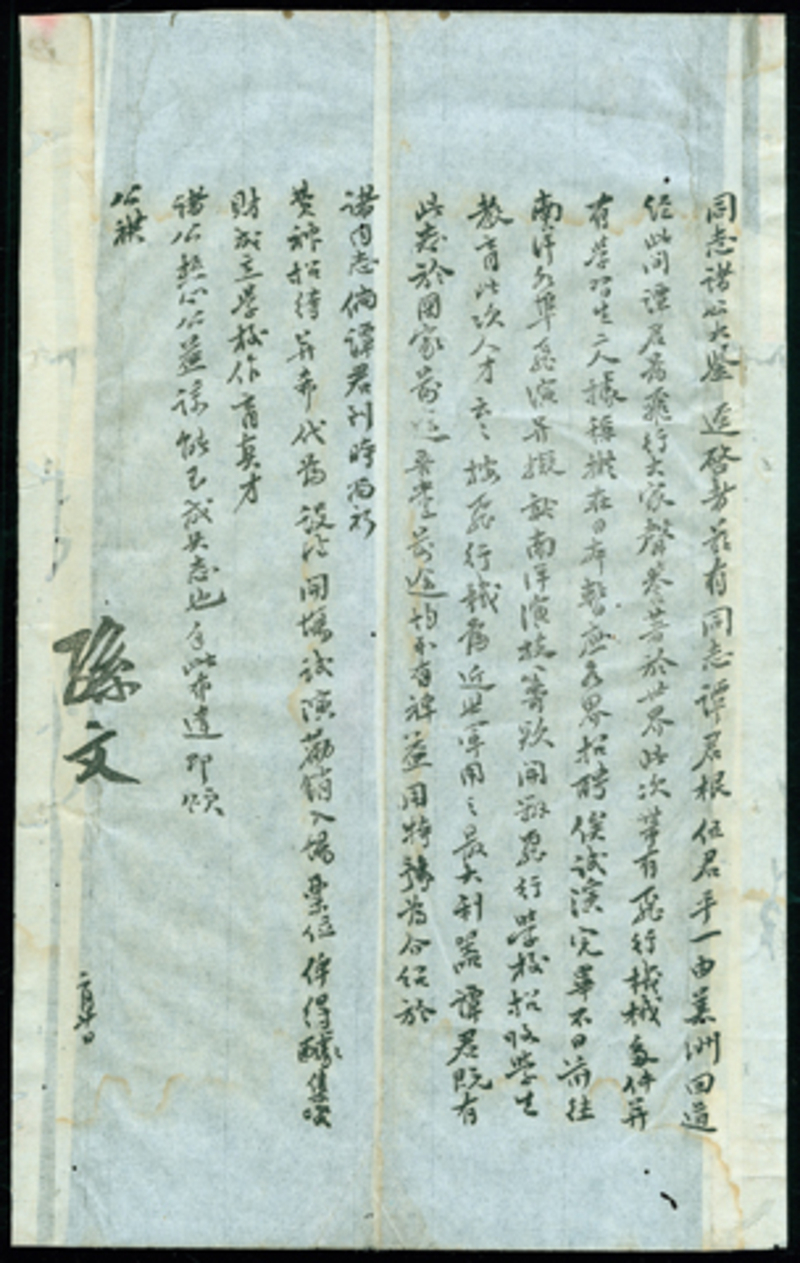 同志諸公大鑒逕啓者茲有同志譚君根伍君平一由美洲回道
經此間譚君為飛行大家聲譽著於世界此次帶有飛行機械多件并
有學習生二人據稱擬在日本暫應各界招聘俟試演完畢不日前往
南洋各埠飛演并擬試南洋演技籌款開辦飛行學校招收學生
教育此次人才云云按飛行機為近世軍用之最大利器譚君既有
此志於國家前途吾黨前途均大有裨益用特專為介紹於
諸同志倘譚君到時為祈
費神招待并希代為設法開場試演勸銷入場票位俾得醵集
財成立學校作育真才
諸公熱心公益諒能玉成其志也手此布達即頌
公祺
孫文
二月廿日